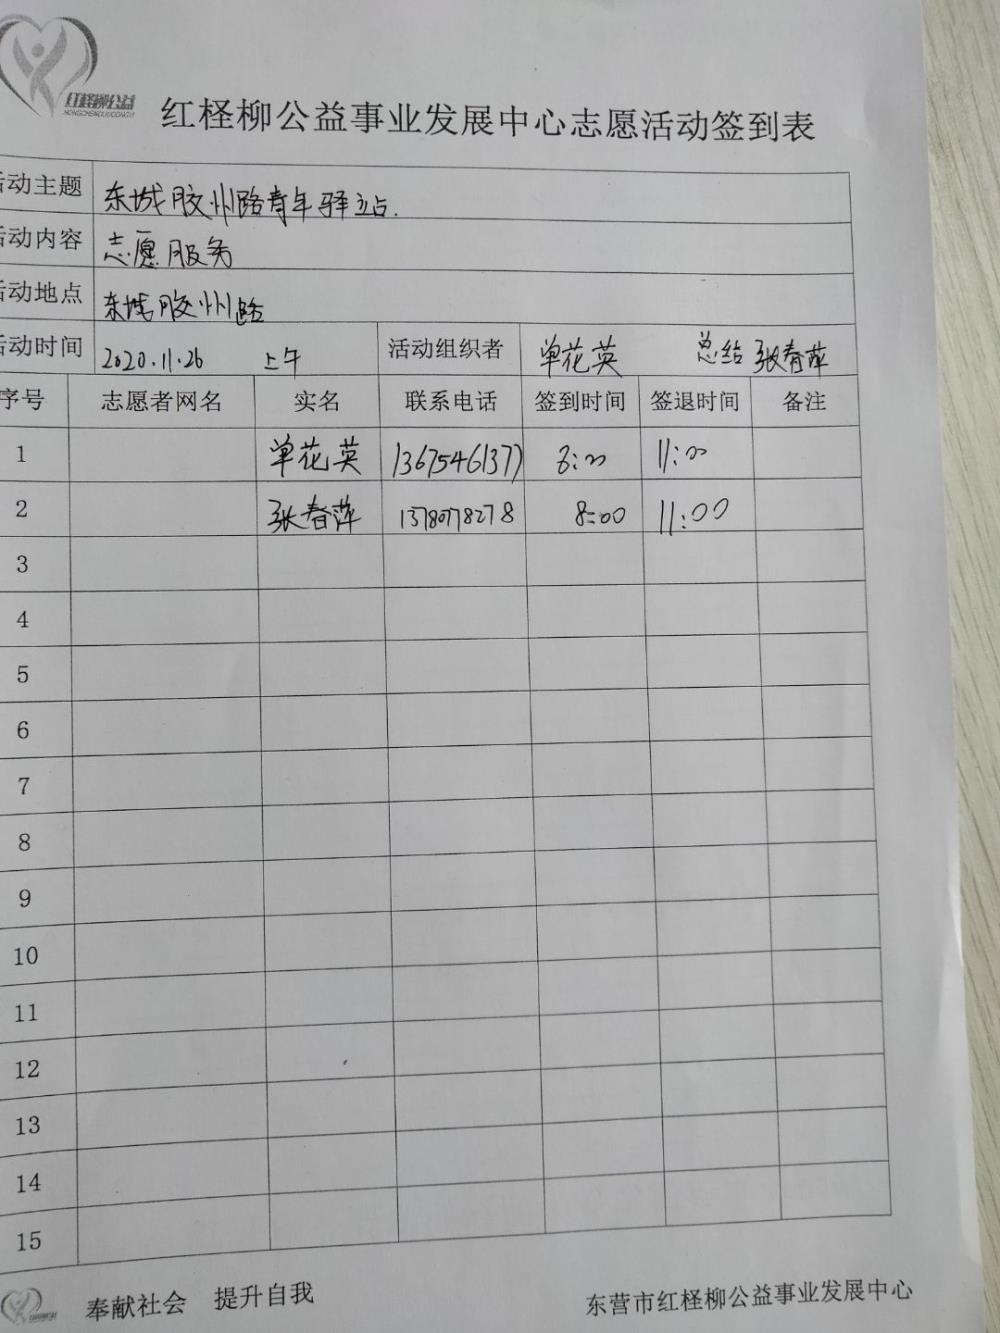 红柽柳公益
红柽柳公益事业发展中心志愿活动签到表
活动主题 东城胶州路青年驿站.
活动内容 志愿服务
活动地点 东城胶州路
活动时间 2020.11.26 上午 活动组织者 单花英 总结 张春萍
序号 志愿者网名 实名 联系电话 签到时间 签退时间 备注
1 单花英 13675461377 8:00 11:00
2 张春萍 8:00 11:00
3
4
5
6
7
8
9
10
11
12
13
14
15
奉献社会 提升自我 东营市红柽柳公益事业发展中心